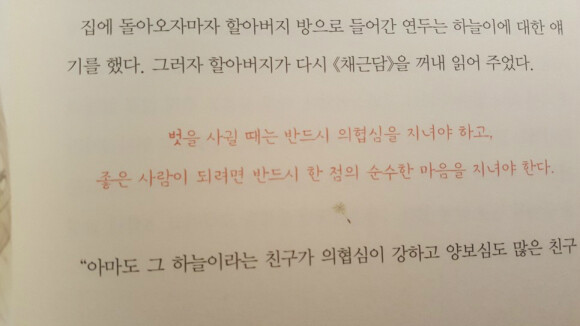 집에 돌아오자마자 할아버지 방으로 들어간 연두는 하늘이에 대한 얘
기를 했다. 그러자 할아버지가 다시 《채근담》을 꺼내 읽어 주었다.
벗을 사귈 때는 반드시 의협심을 지녀야 하고,
좋은 사람이 되려면 반드시 한 점의 순수한 마음을 지녀야 한다.
“아마도 그 하늘이라는 친구가 의협심이 강하고 양보심도 많은 친구